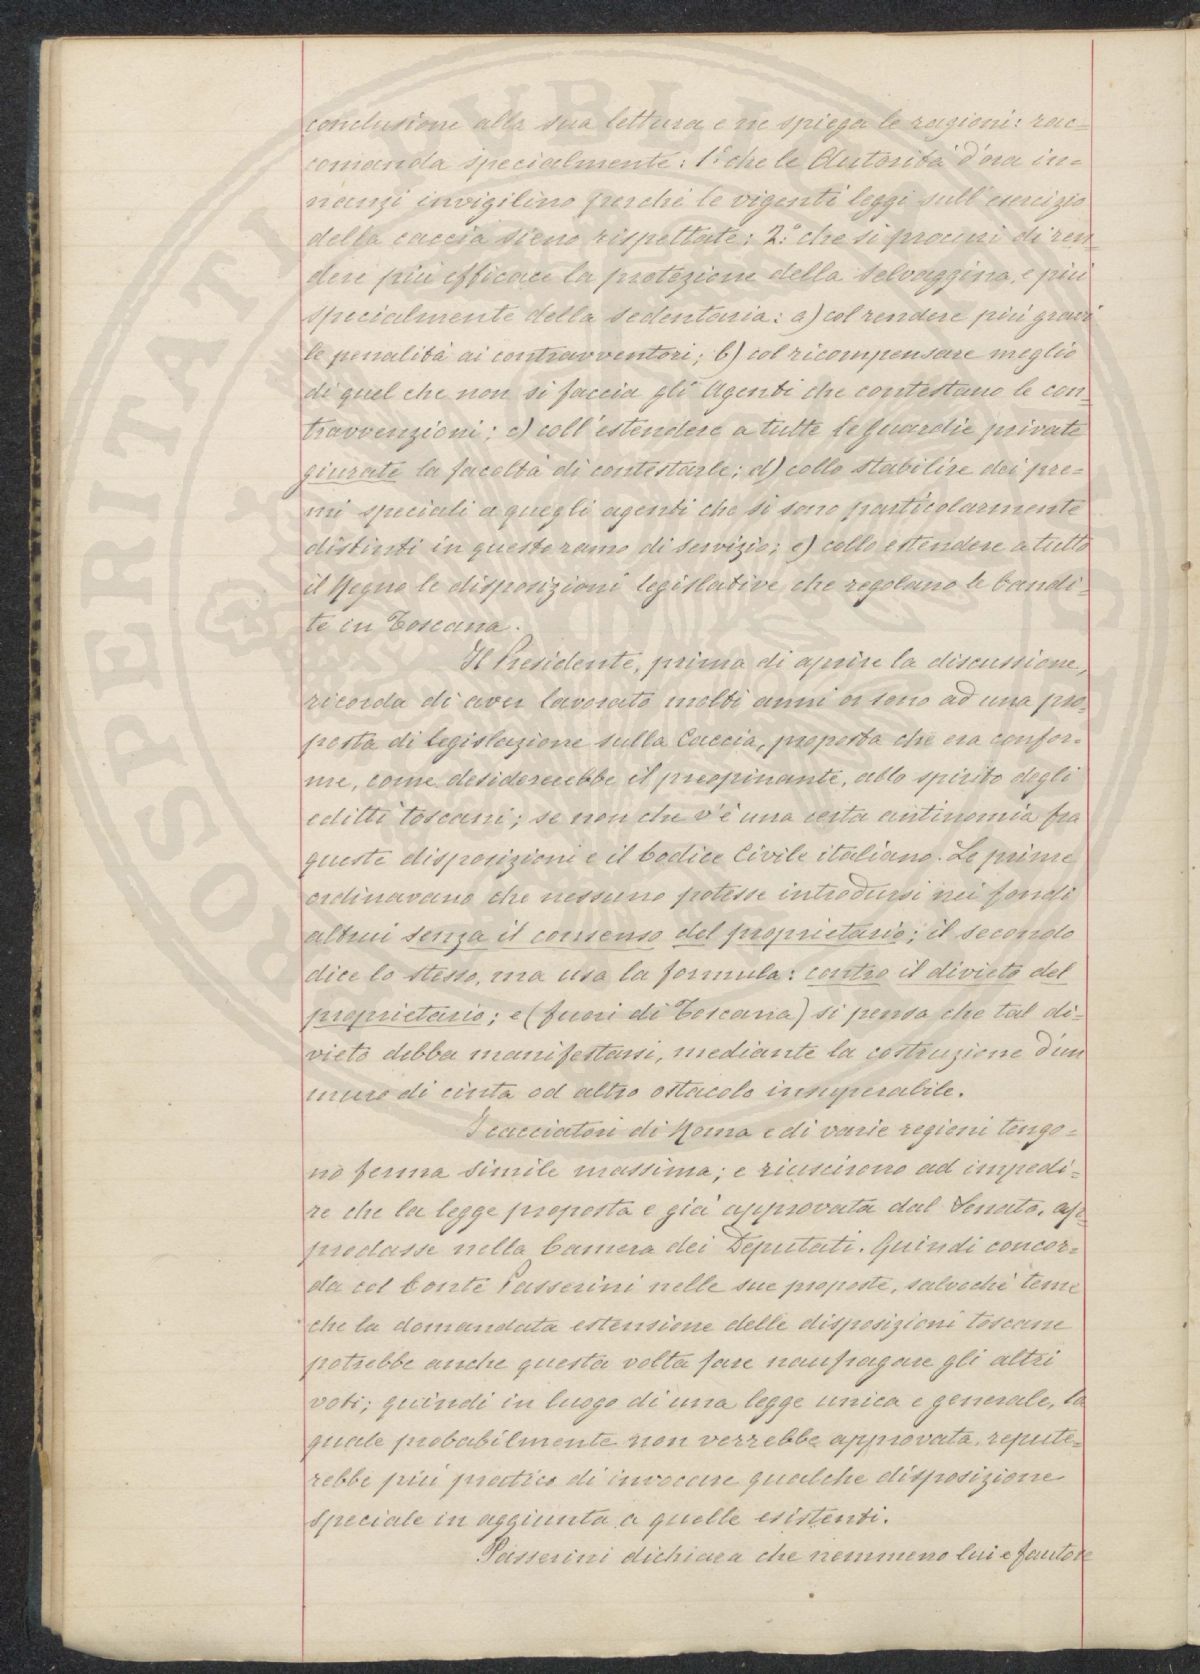 conclusione alla sua lettura, e ne spiega le ragioni: rac=
comanda specialmente: 1.º che le Autorità d'ora in=
nanzi invigilino perchè le vigenti leggi sull'esercizio
della caccia sieno rispettate; 2.º che si procuri di ren=
dere più efficace la protezione della selvaggina, e più
specialmente della sedentaria: a) col rendere più gravi
le penalità ai contravventori; b) col ricompensare meglio
di quel che non si faccia gli Agenti che contestano le con=
travvenzioni; c) coll'estendere a tutte le Guardie private
giurate la facoltà di contestarle; d) collo stabilire dei pre=
mi speciali a quegli agenti che si sono particolarmente
distinti in questo ramo di servizio; e) collo estendere a tutto
il Regno le disposizioni legislative che regolano le bandi=
te in Toscana.
Il Presidente, prima di aprire la discussione,
ricorda di aver lavorato molti anni or sono ad una pro=
posta di legislazione sulla Caccia, proposta che era confor=
me, come desidererebbe il preopinante, allo spirito degli
editti toscani; se non che v'è una certa antinomia fra
queste disposizioni e il Codice Civile italiano. Le prime
ordinavano che nessuno potesse introdursi nei fondi
altrui senza il consenso del proprietario; il secondo
dice lo stesso, ma usa la formula: contro il divieto del
proprietario; e (fuori di Toscana) si pensa che tal di=
vieto debba manifestarsi, mediante la costruzione d'un
muro di cinta od altro ostacolo insuperabile.
I cacciatori di Roma e di varie regioni tengo=
no ferma simile massima; e riuscirono ad impedi=
re che la legge proposta e già approvata dal Senato, ap=
prodasse nella Camera dei Deputati. Quindi concor=
da col Conte Passerini nelle sue proposte, salvochè teme
che la domandata estensione delle disposizioni toscane
potrebbe anche questa volta fare naufragare gli altri
voti; quindi in luogo di una legge unica e generale, la
quale probabilmente non verrebbe approvata, repute=
rebbe più pratico di invocare qualche disposizione
speciale in aggiunta a quelle esistenti.
Passerini dichiara che nemmeno lui è fautore
PROSPERITATI